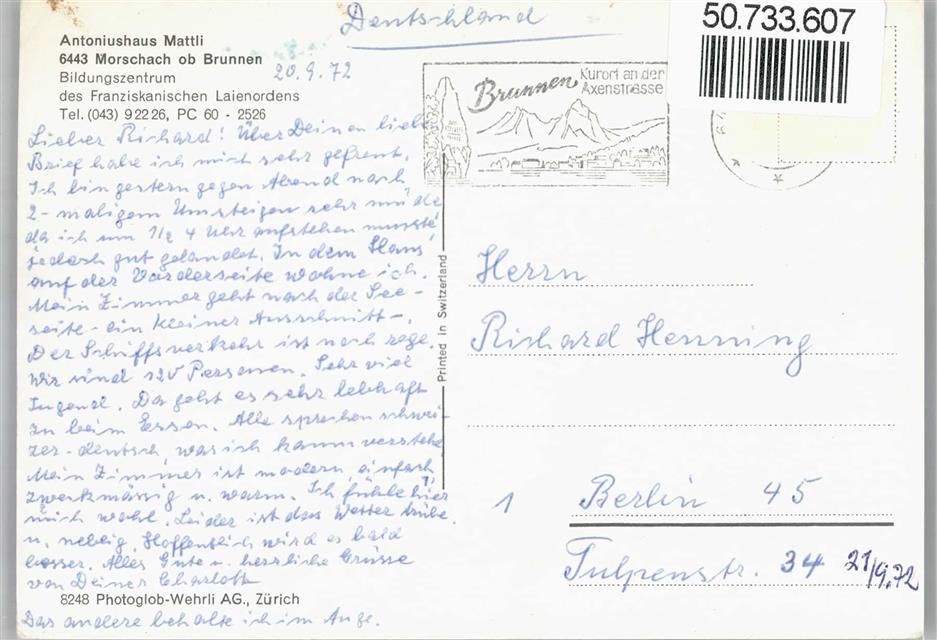 Deutschland
50.733.607
Antoniushaus Mattli
6443 Morschach ob Brunnen
Bildungszentrum
des Franziskanischen Laienordens
Tel. (043) 9 22 26, PC 60 - 2526
20.9.72
Brunnen Kurort an der
Axenstrasse
Lieber Richard! Über Deinen lieben
Brief habe ich mich sehr gefreut.
Ich bin gestern gegen Abend nach
2-maligem Umsteigen sehr müde
da ich um 1/2 4 Uhr aufstehen musste
jedoch gut gelandet. In dem Haus
auf der Vorderseite wohne ich.
Mein Zimmer geht nach der See-
seite - ein kleiner Ausschnitt -.
Der Schiffsverkehr ist noch rege.
Wir sind 120 Personen. Sehr viel
Jugend. Da geht es sehr lebhaft
zu beim Essen. Alle sprechen schwei-
zer-deutsch, was ich kaum verstehe
Mein Zimmer ist modern, einfach,
zweckmässig u. warm. Ich fühle hier
mich wohl. Leider ist das Wetter trübe
u. neblig. Hoffentlich wird es bald
besser. Alles Gute u. herzliche Grüsse
von Deiner Charlotte
8248 Photoglob-Wehrli AG., Zürich
Das andere behalte ich im Auge.
Printed in Switzerland
Herrn
Richard Henning
1 Berlin 45
Tulpenstr. 34 21/9.72